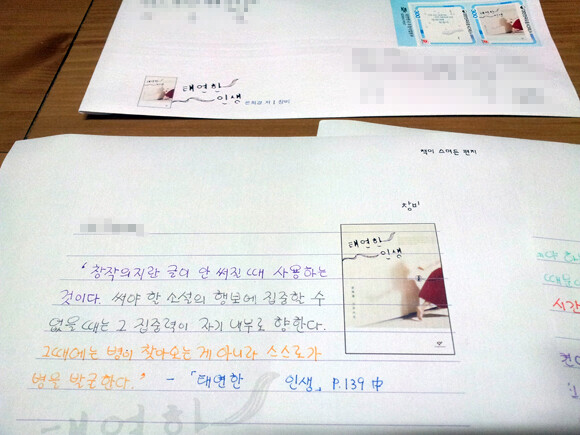 300
300
태연한
인생
은희경 저 | 창비
책이 스며든 편지
창비
태연한
인생
'창작의지란 글이 안 써진 때 사용하는
것이다. 써야 할 소설의 행보에 집중할 수
없을 때는 그 집중력이 자기 내부로 향한다.
그때에는 병이 찾아오는 게 아니라 스스로가
병을 발굴한다." - 「태연한 인생」 P.139 中
태연한
시간